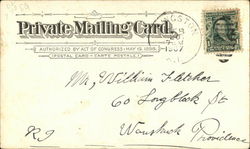 Private Mailing Card.
AUTHORIZED BY ACT OF CONGRESS-MAY 19, 1898.
(POSTAL CARD - CARTE POSTALE)
Mr. William Fletcher
60 Longblack St
Providence
R I